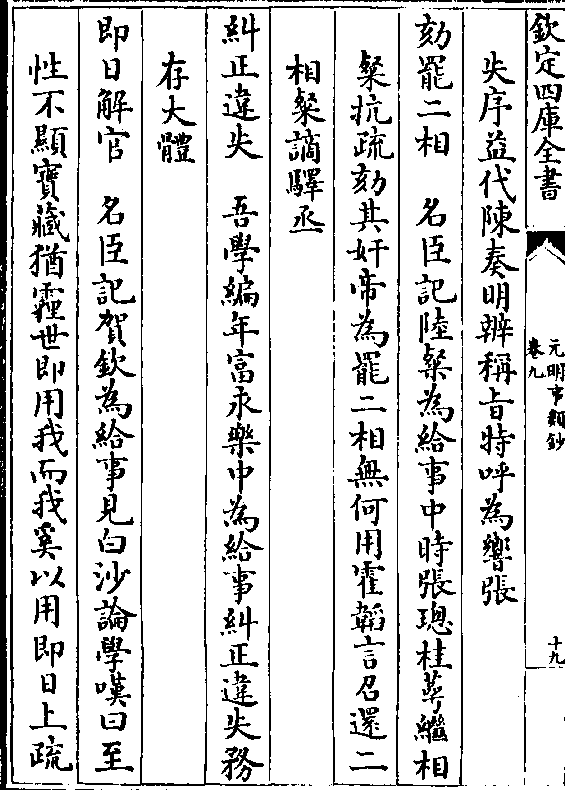 欽定四庫全書
元明事類鈔
卷九
十九
失序益代陳奏明辨稱旨時呼為響張
劾罷二相　名臣記陸粲為給事中時張璁桂萼繼相
粲抗疏劾其奸帝為罷二相無何用霍韜言召還二
相粲謫驛丞
糾正違失　吾學編年富永樂中為給事糾正違失務
存大體
即日解官　名臣記賀欽為給事見白沙論學嘆曰至
性不顯寶藏猶霾世即用我而我奚以用即日上疏